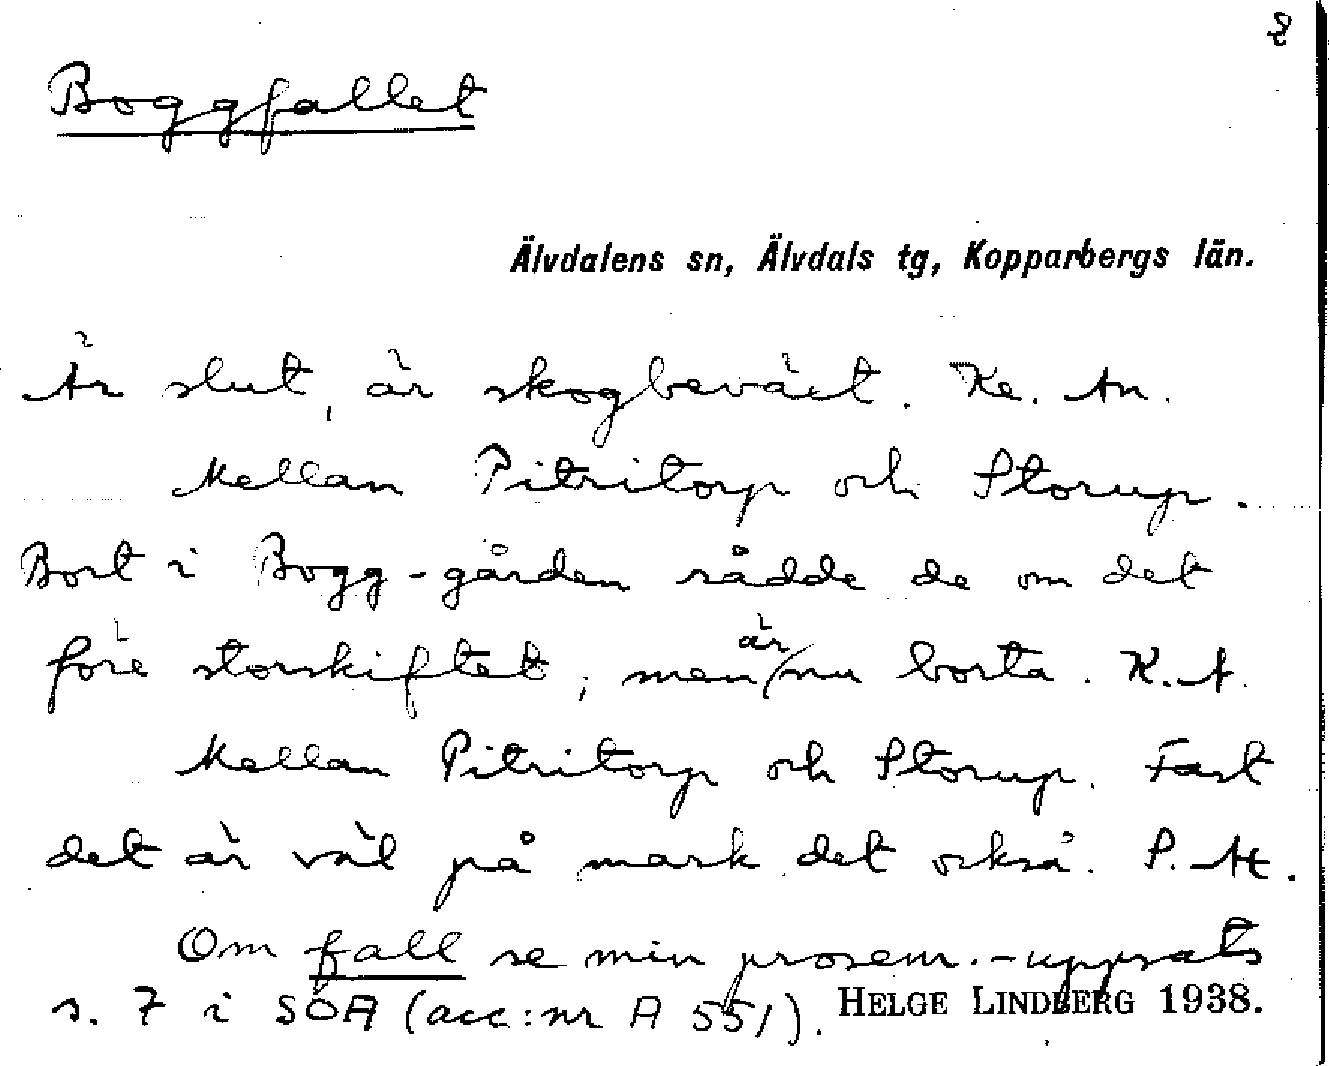 2
Boggfallet
Älvdalens sn, Älvdals tg, Kopparbergs län.
Är slut, är skogbeväxt. Ke. An.
Mellan Pitritorp och Storup.
Bort i Bogg-gården rådde de om det
före storskiftet, men är nu borta. K. A.
Mellan Pitritorp och Storup. Fast
det är väl på mark det också. P. M.
Om fall se min prosem.-uppsats
s. 7 i SOA (acc:nr A 551). HELGE LINDBERG 1938.